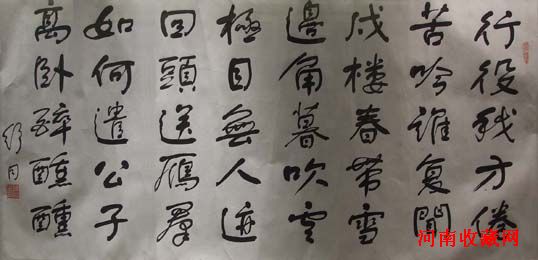 行役我方倦
苦吟誰復聞
戍楼春帶雪
邊角暮吹雲
極目無人迹
回頭送鴈羣
如何遣公子
高卧醉醺醺
舒同
河南收藏网